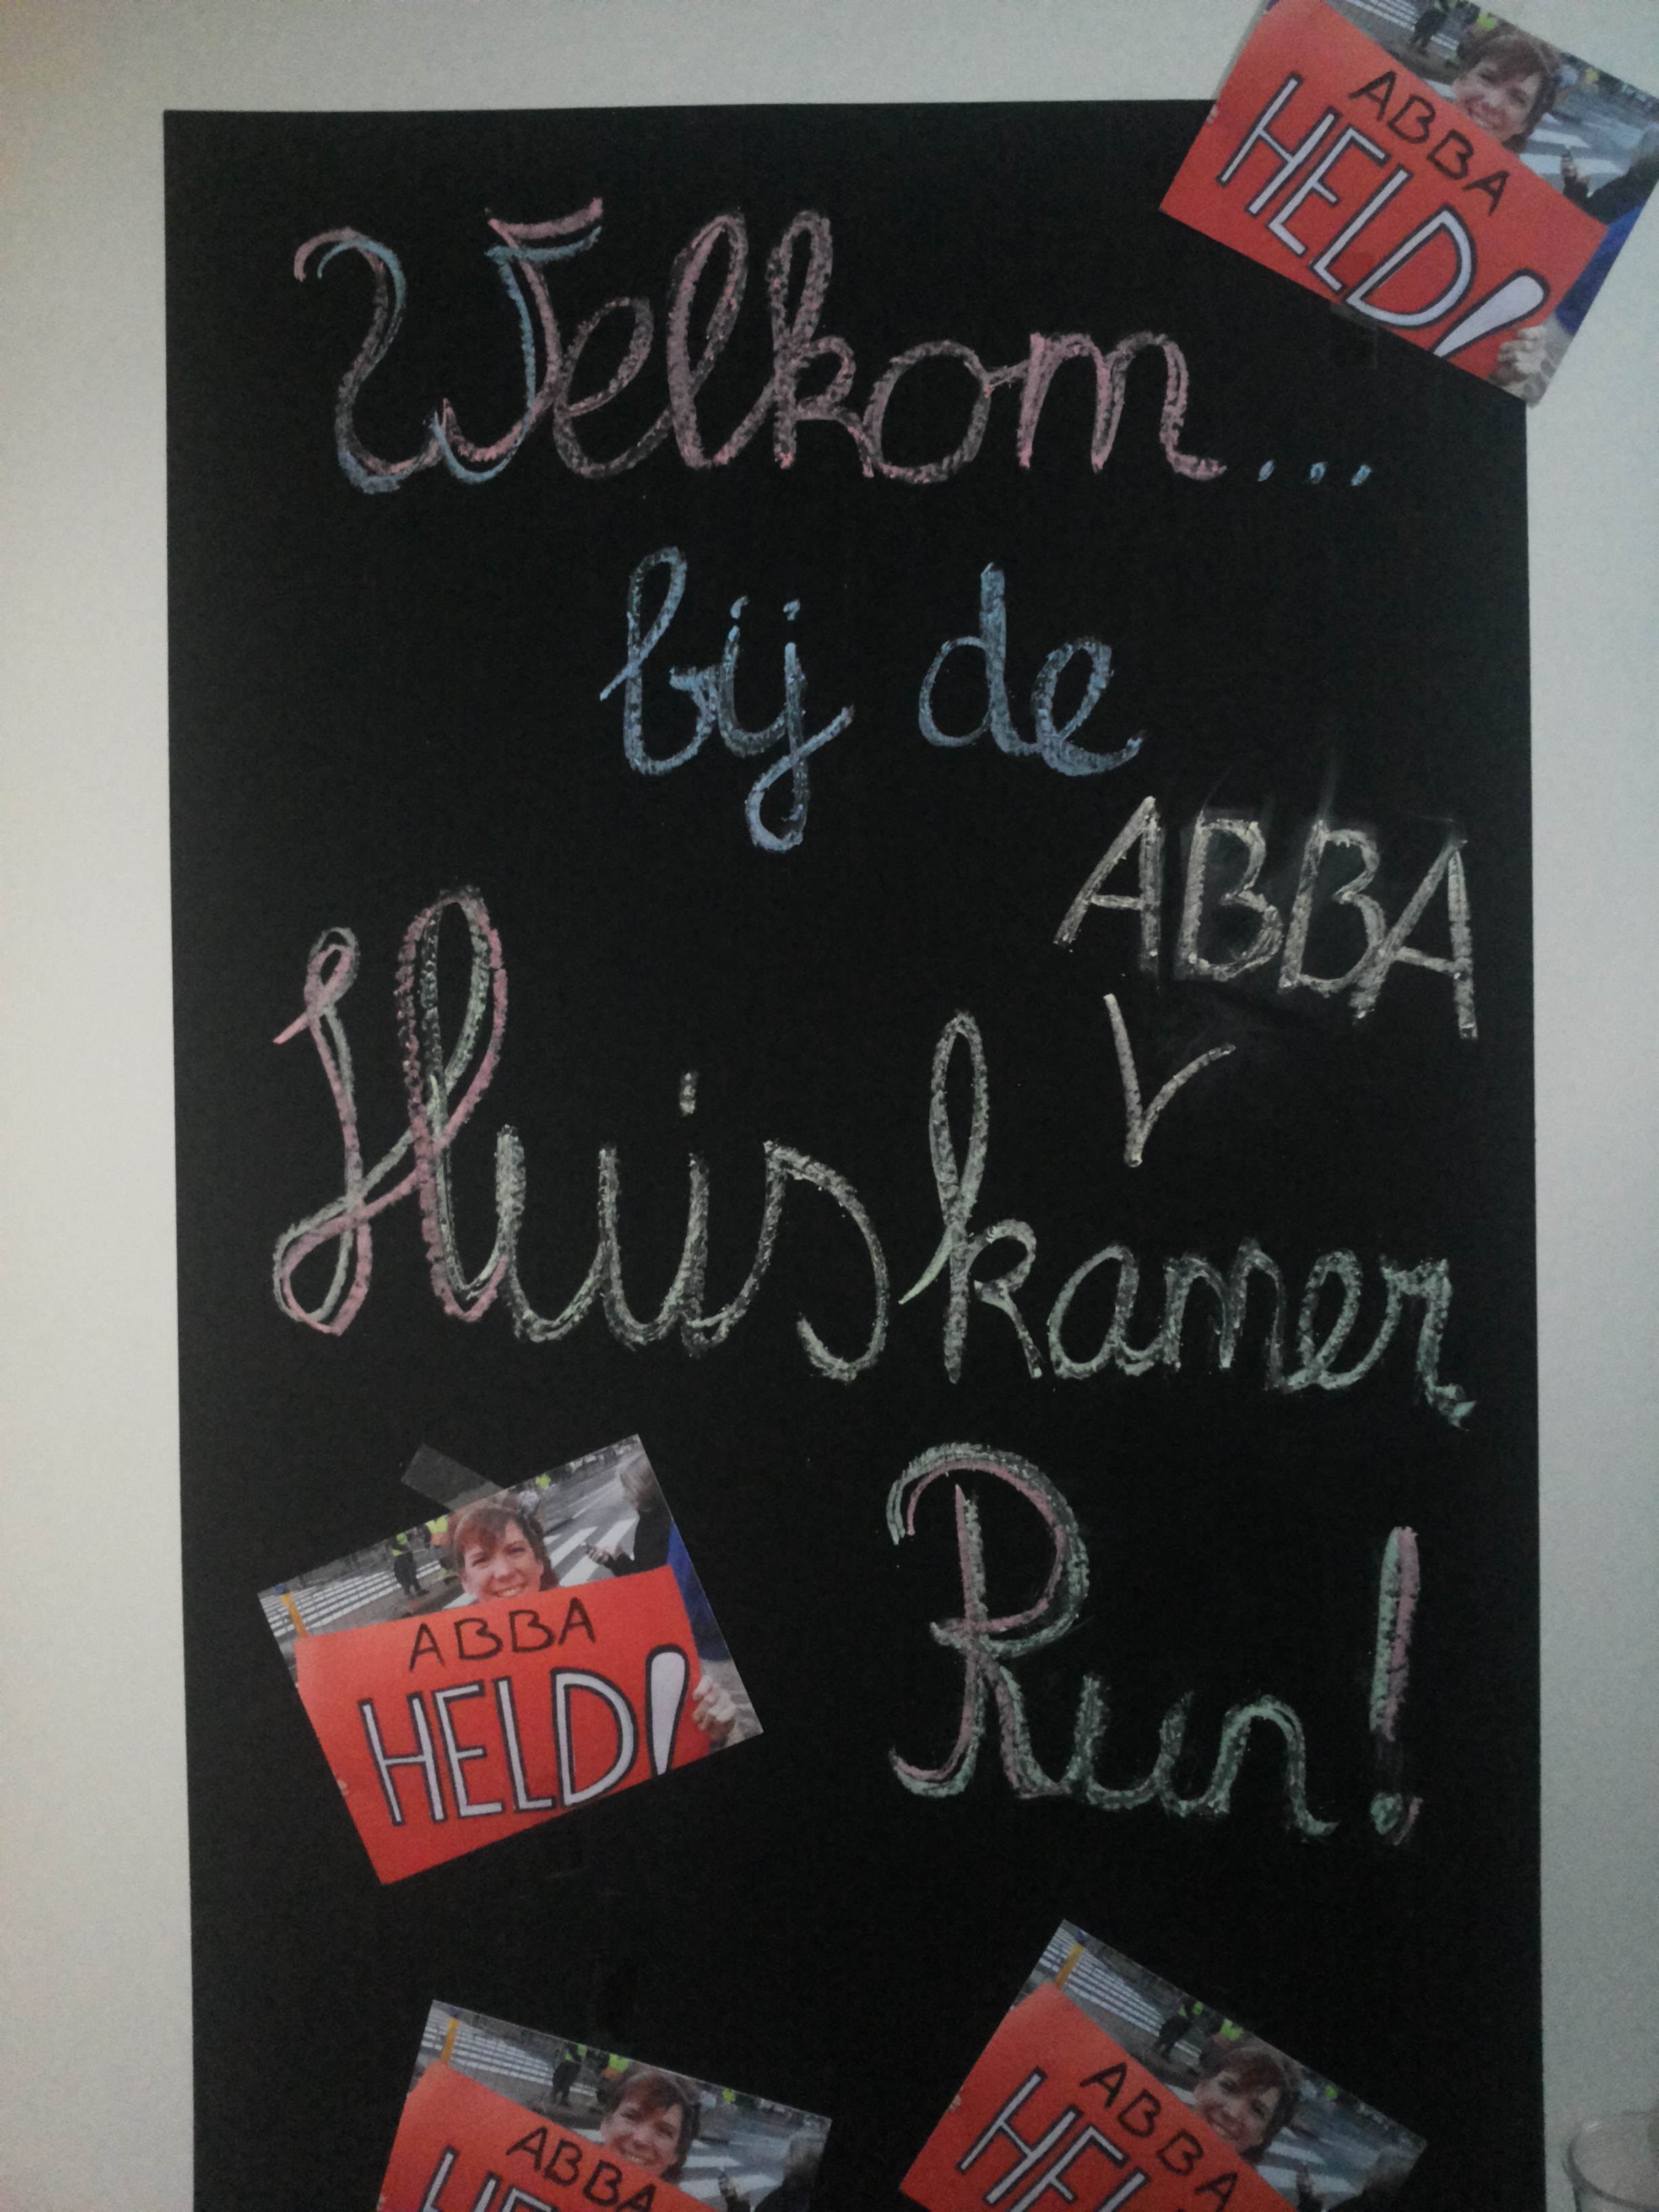 ABBA
HELD!
Welkom...
bij de
ABBA
Huiskamer
Run!
ABBA
HELD!
ABBA
HEL
ABBA
HE